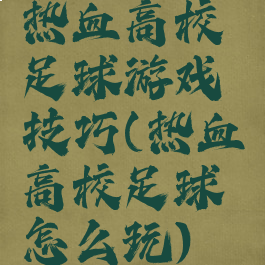 热血高校
足球游戏
技巧(热血
高校足球
怎么玩)